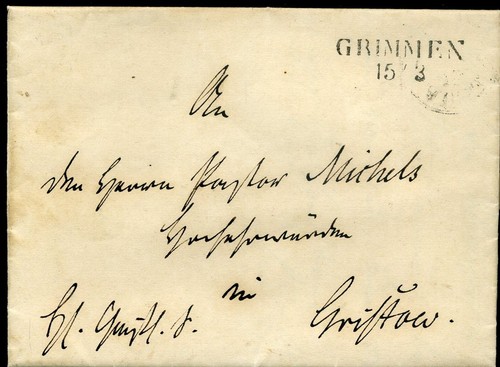 GRIMMEN
15/3
An
den Herrn Pastor Michels
Hochehrwürden
in
Gristow.